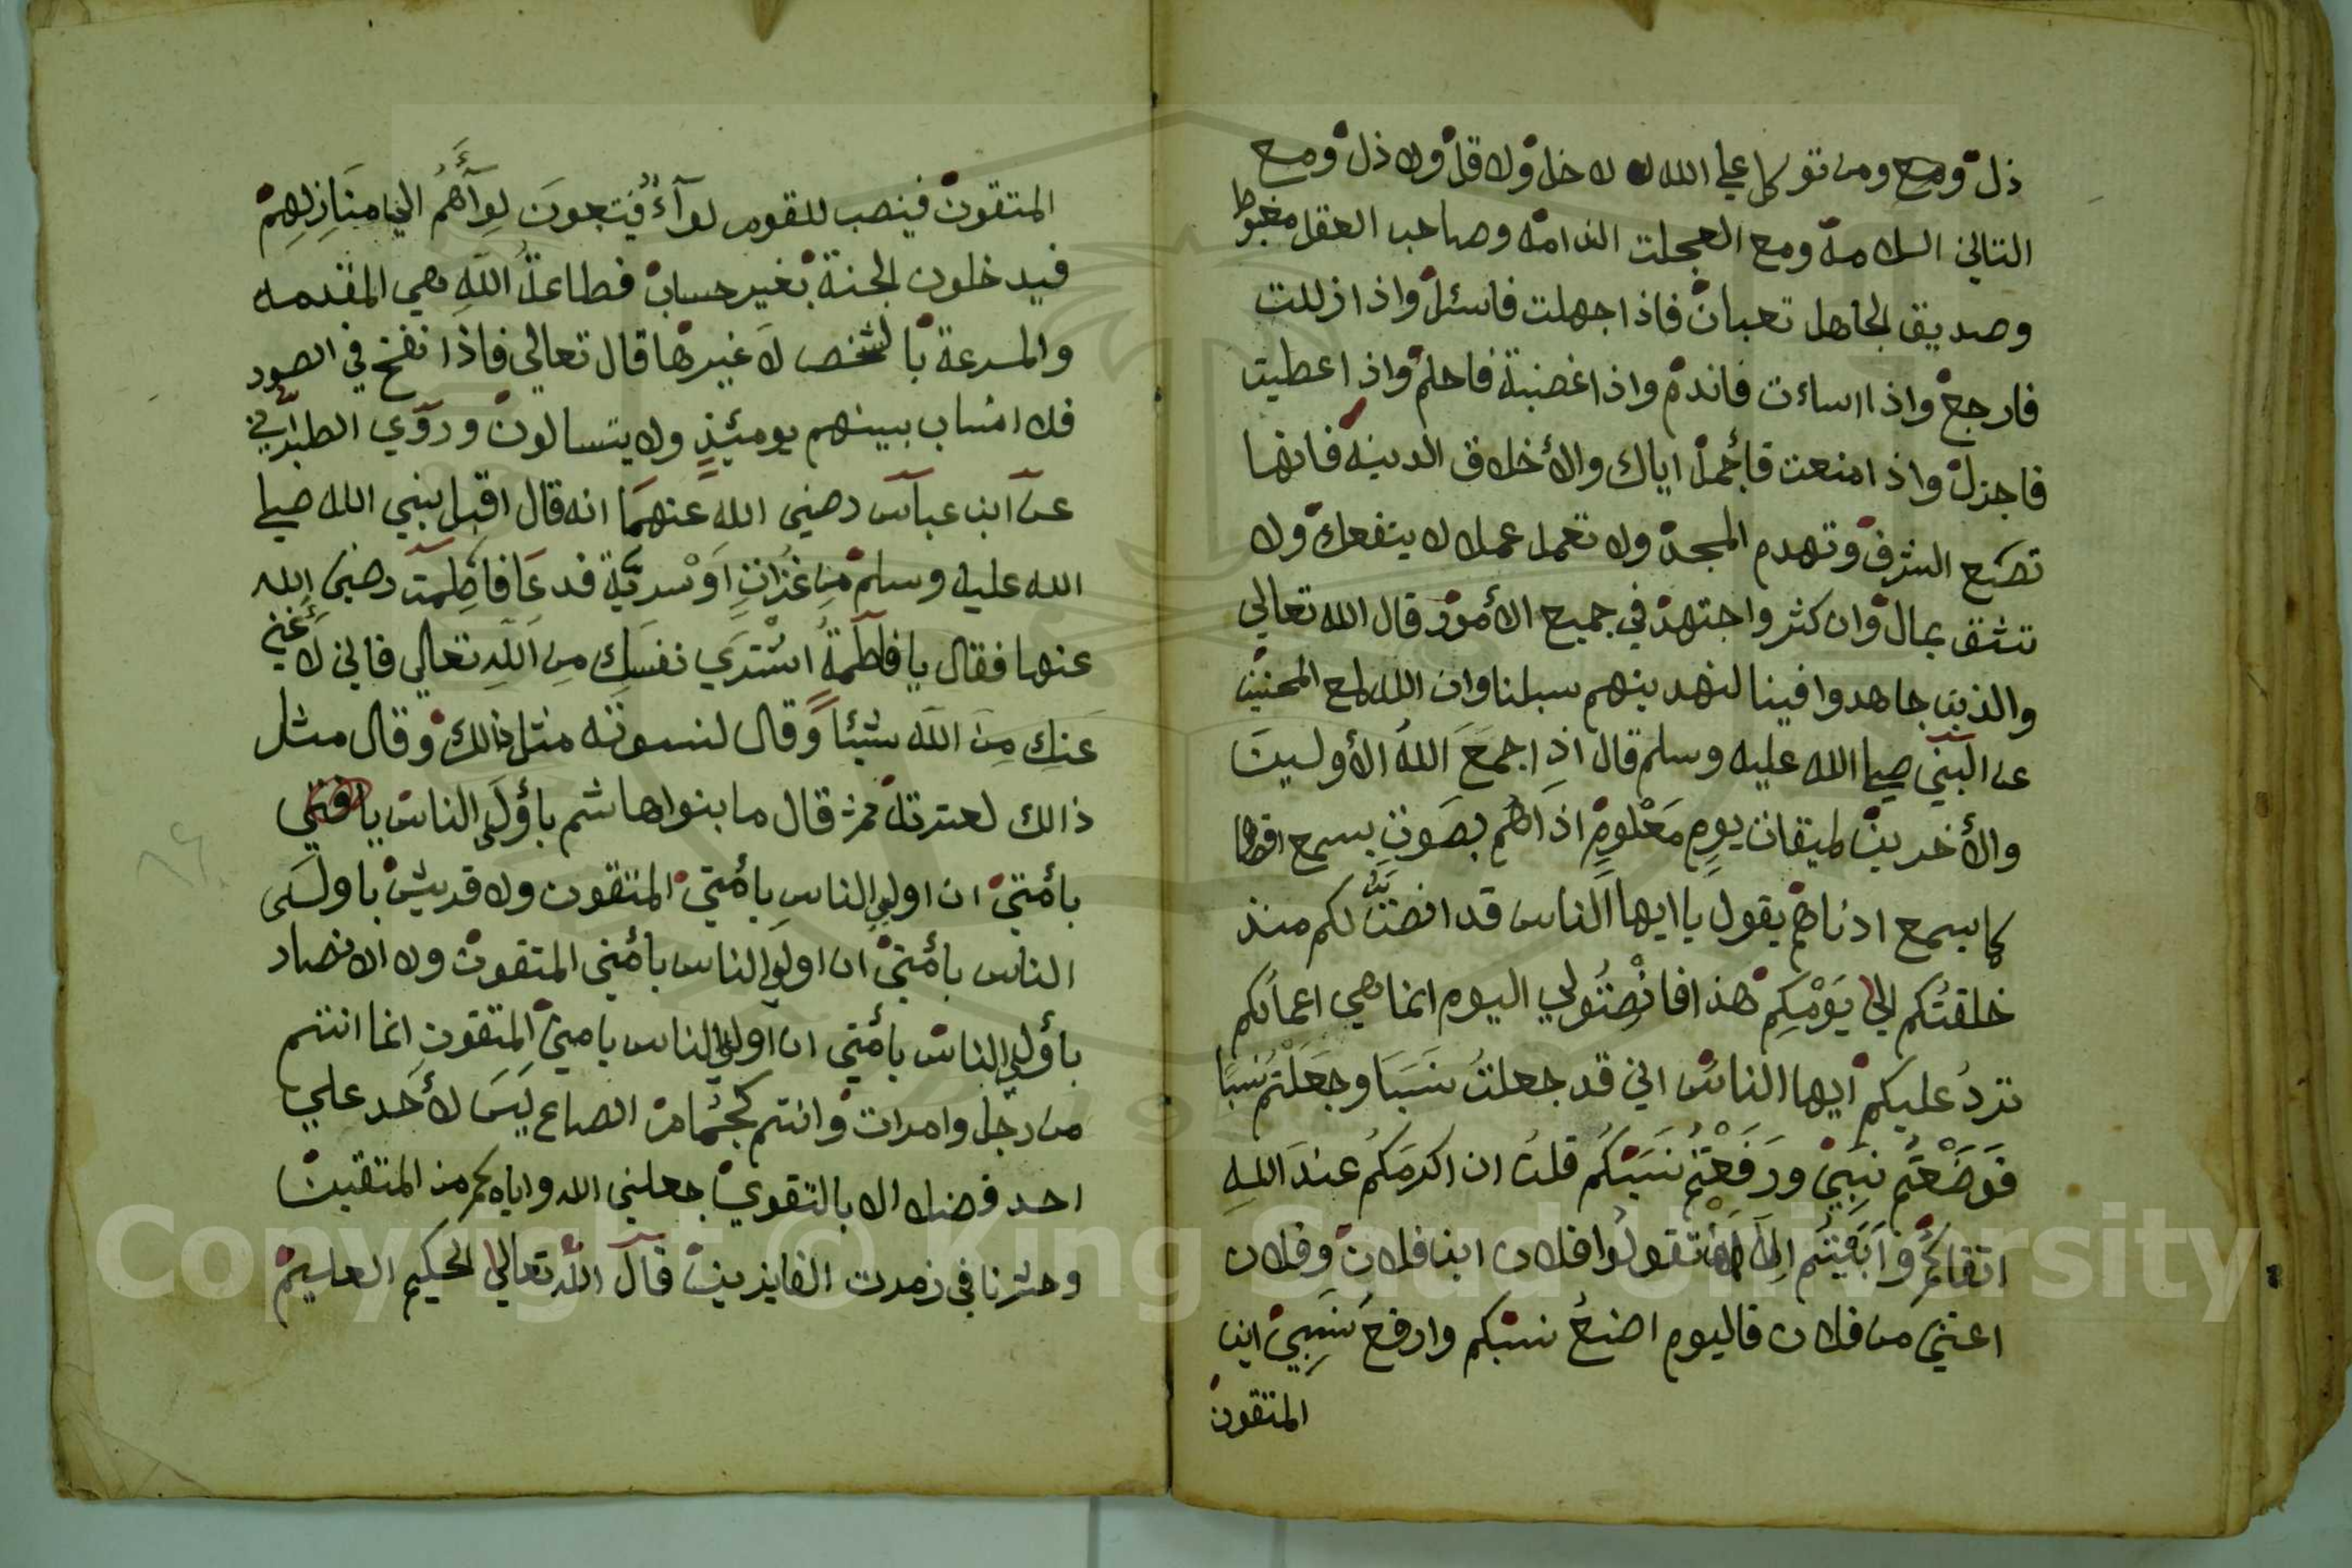 ذل ومع ومن توكل علي الله لا خل ولا قل ولا ذل ومع
التاني السلامة ومع العجلت الندامه وصاحب العقل مغبوط
وصديق الجاهل تعبان فاذا جهلت فاسئل واذا زللت
فارجع واذا اساءت فاندم واذا غضبة فاحلم واذا اعطيت
فاجزل واذا منعت فأجمل اياك والأخلاق الدنية فانها
تضع الشرف وتهدم المجد ولا تعمل عملا لا ينفعك ولا
تثق بمال وان كثر واجتهد في جميع الأمور قال الله تعالي
والذين جاهدوا فينا لنهدينهم سبلنا وان الله لمع المحسنين
عن النبي صلي الله عليه وسلم قال اذِ اجمعَ اللهُ الأوليتَ
والأخرين لميقات يومٍ مَعْلُومٍ اذَاهُم بصَوتٍ يسمع اقصاها
كما يسمع ادناهم يقول يا ايها الناس قد انصتُّ لكم منذ
خلقتُكم الي يَوْمِكِم هذا فانْصِتُو لي اليوم انما هي اعمالكم
تردُ عليكم ايها الناس اني قد جعلتُ نَسَبَا وجعَلْتم نسبًا
فوَضَعْتُم نسَبِيْ ورَفَعْتُم نَسَبَكُم قلتُ ان اكرمَكُم عندَ اللهِ
اتقاكُم وأبَيْتُم اِلآ ان تقولُوا فلان ابن فلان وفلان
اغني من فلان فاليوم اضعُ نسبكم وارفعَ نَسَبِيْ اين
المتقون
المتقون فينصب للقوم لوآءٌ فيَتبعونَ لِوَآأهُم الي منَازِلِهِم
فيدخلون الجنة بغير حساب فطاعةُ اللَهِ هي المقدمه
والمسرعة بالشخص لَا غيرها قال تعالي فاذا نفخ في الصور
فلا انساب بينهم يومئذٍ ولا يتسالون وروي الطبراني
عن ابن عباس رضي الله عنهمَا انه قال اقبل نبي الله صلي
الله عليه وسلم مِن غزاتٍ اَوْ سريَّة فدعَا فاطِمت رضي الله
عنها فقال يا فاطمةُ اشْتَرَي نفسَكِ مِن اللَهِ تعالي فاني لَا أغني
عَنكِ مِنَ اللَه شيئاً وقال لنسوته مثل ذالك وقال مثل
ذالك لعترتهُ ثم قال ما بنوا هاشم بأؤلي الناس يا
بأمتي ان اولي الناسِ بأمتي المتقون ولا قريش باولَي
الناس بأمتي ان اولي الناس بأمتي المتقون ولا الانصار
بأولي الناس بأمتي ان اولي الناس بامتي المتقونِ انما انتم
من رجل وامرات وانتم كجُمام الصاع ليَسَ لأحَد علي
احد فضلا الا بالتقوي جعلني الله واياكم من المتقين
وحشرنا في زمرت الفايزين قال الله تعالي الحكيم العليم